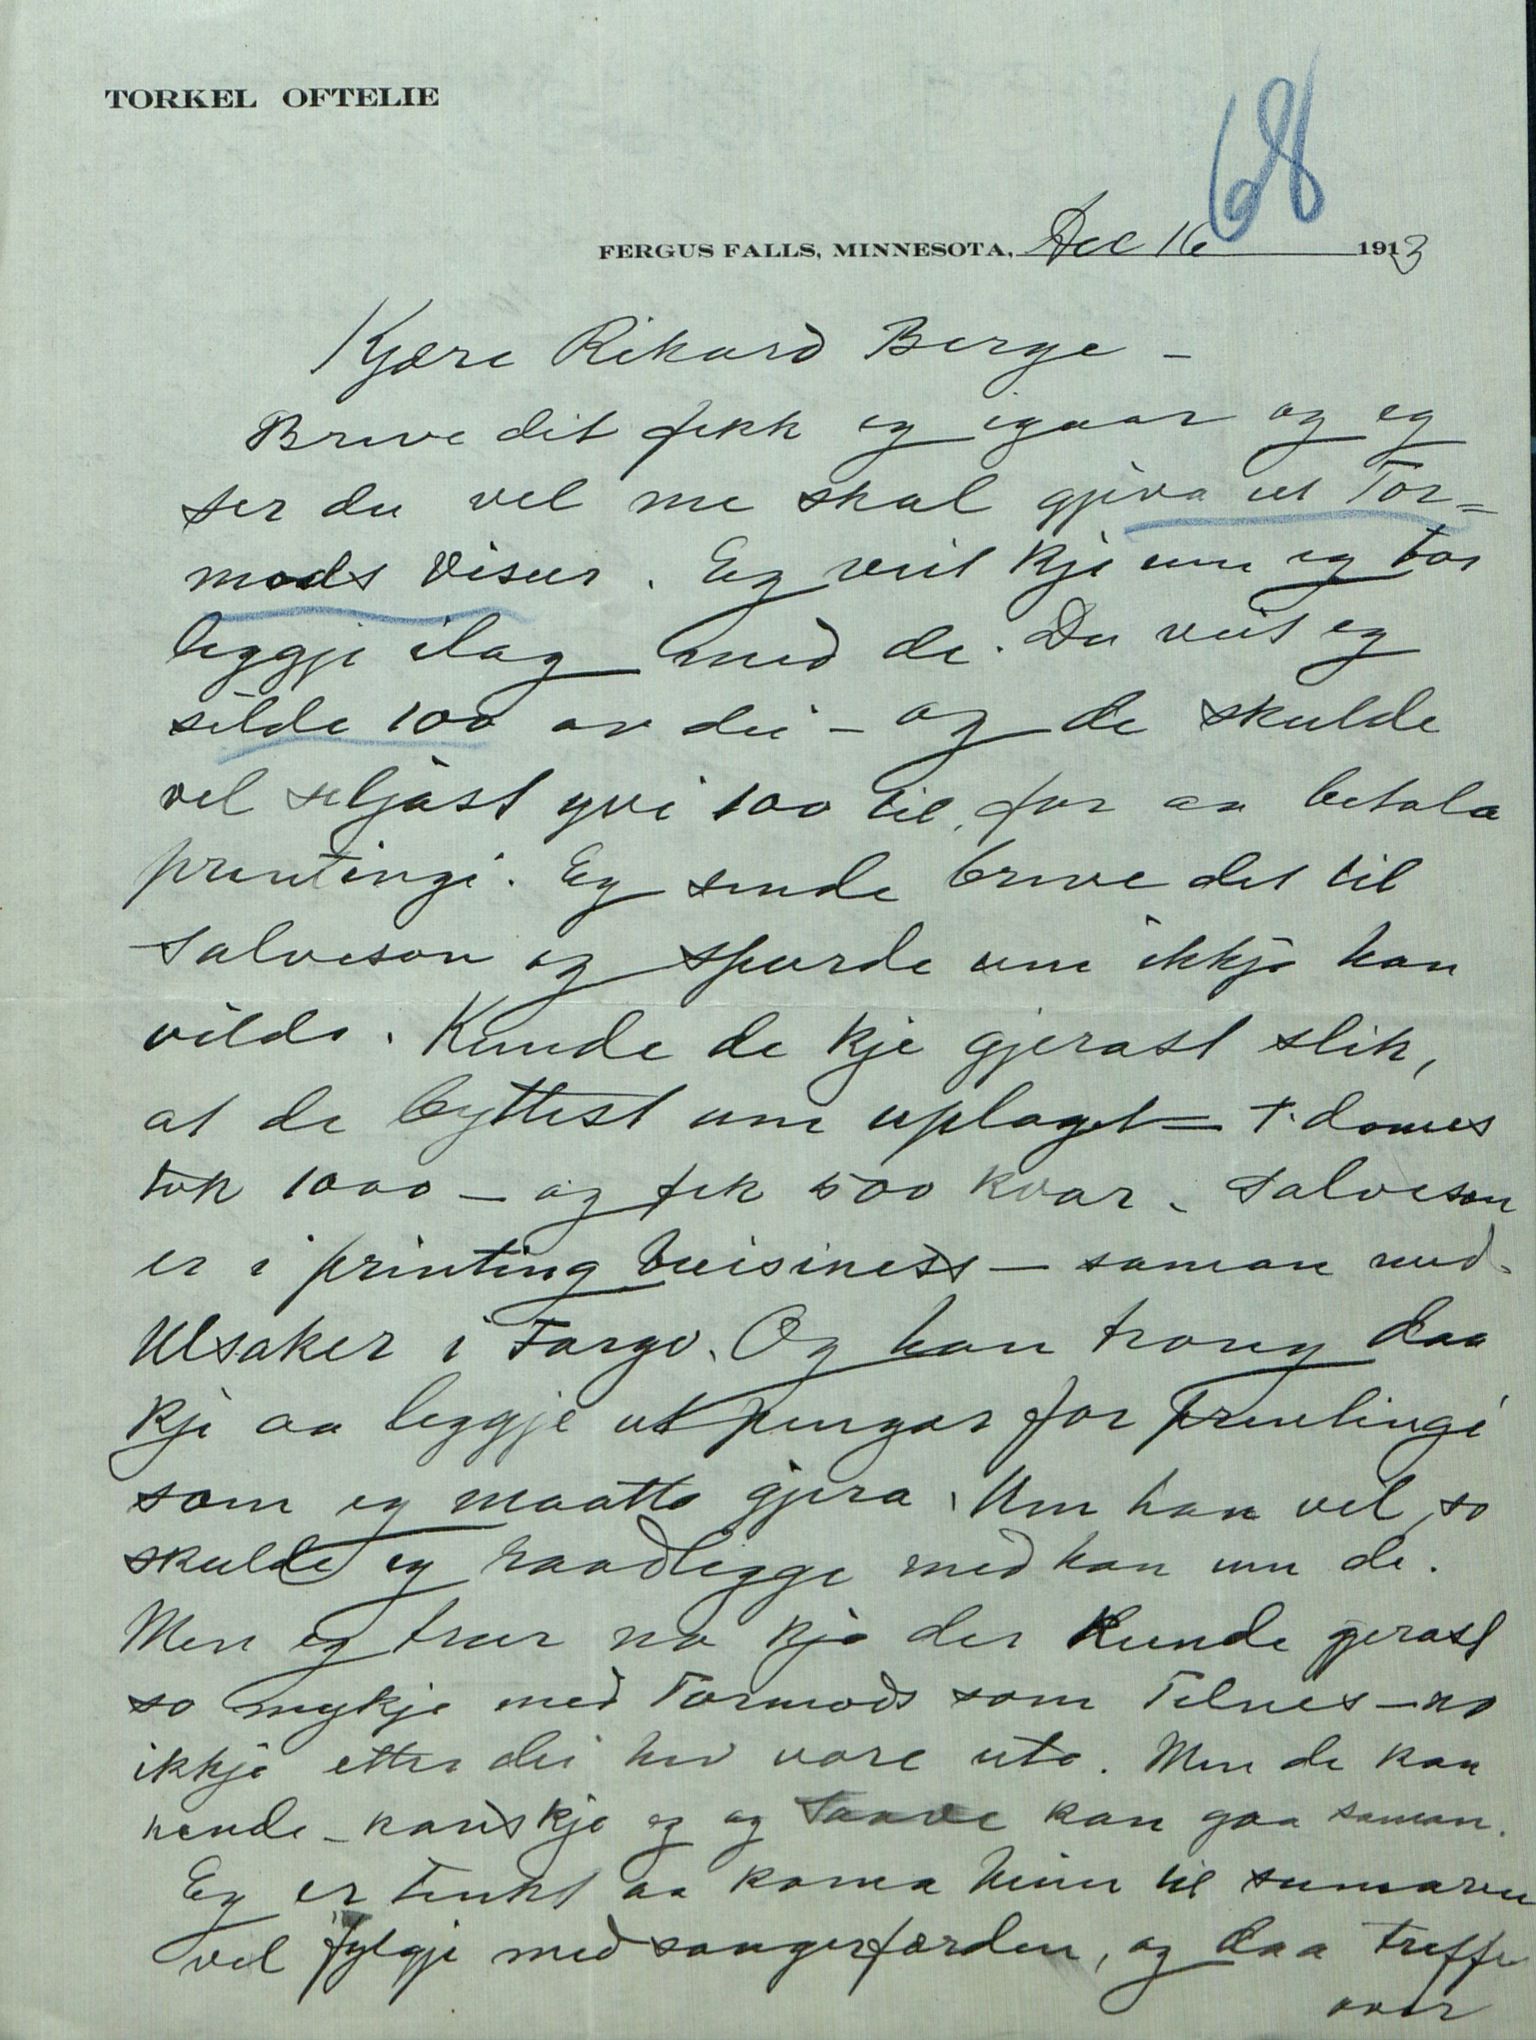 TORKEL OFTELIE
68
FERGUS FALLS, MINNESOTA, Dec 16 1913
Kjære Rikard Berge –
Breve dit fekk eg igaar og eg
ser du vel me skal gjeva ut Tor=
mods Visur. Eg veit kje um eg tor
leggje ilag med de. Du veit eg
selde 100 av dei – og de skulde
vel seljast yvi 100 til, for aa betala
printingi. Eg sende breve det til
Salveson og spurde um ikkje han
vilde. Kunde de kje gjerast slik,
at de byttest um uplaget – T. domes
tok 1000 – og fek 500 kvar. Salveson
er i printing buisiness – saman med
Ulsaker i Fargo. Og han trong daa
kje aa leggje ut pengar for printingi
som eg maatte gjera. Um han vel, so
skulde eg raadleggje med han um de.
Men eg trur no kje der kunde gjerast
so mykje med Tormods som Telnes – no
ikkje etter dei hev vore ute. Men de kan
hende – kanskje eg og Taave kan gaa saman.
Eg er tenkt aa koma heim til sumaren
vel fylgje med sangerfærden, og daa treffe
over